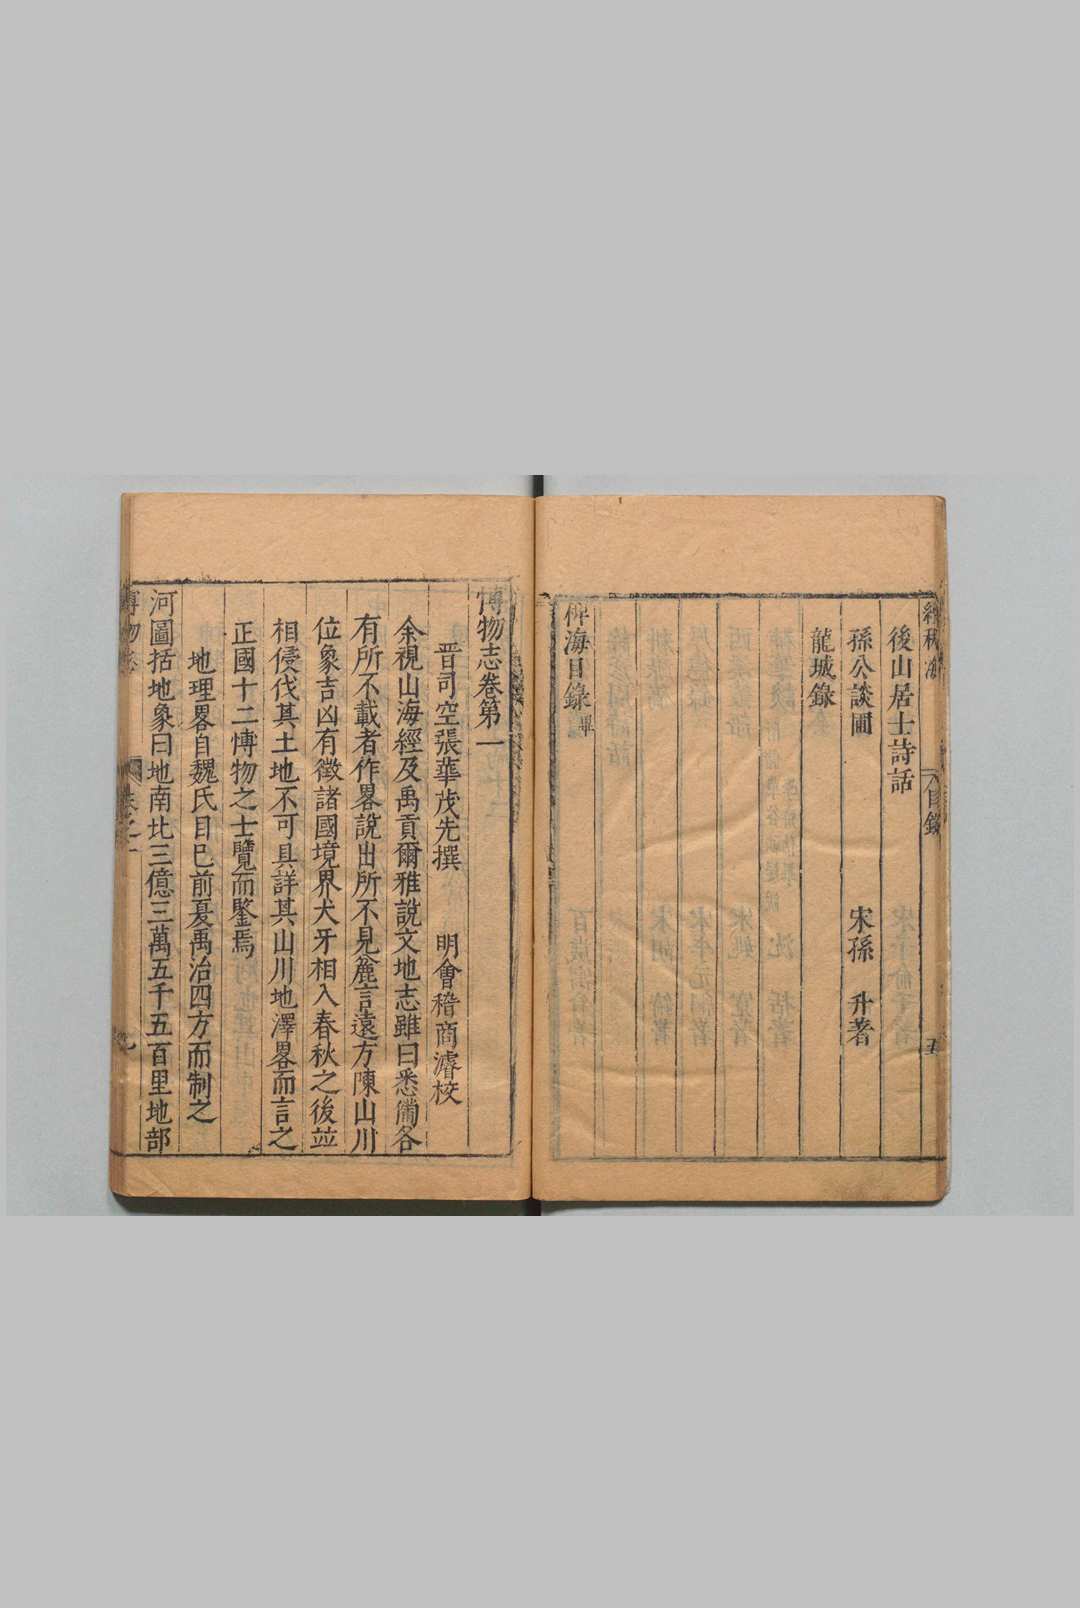 後山居士詩話
孫公談圃　宋孫　升著
龍城錄
稗海目錄畢
目錄
五
博物志卷第一
晋司空張華茂先撰　明會稽商濬校
余視山海經及禹貢爾雅說文地志雖曰悉備各
有所不載者作畧說出所不見麄言遠方陳山川
位象吉凶有徵諸國境界犬牙相入春秋之後並
相侵伐其土地不可具詳其山川地澤畧而言之
正國十二博物之士覽而鑒焉
地理畧自魏氏目巳前夏禹治四方而制之
河圖括地象曰地南北三億三萬五千五百里地部
博物志
卷之一